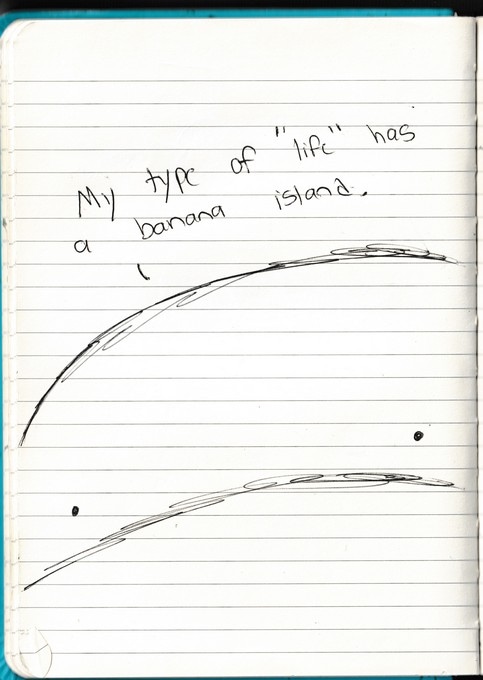 My type of "life" has
a banana island.